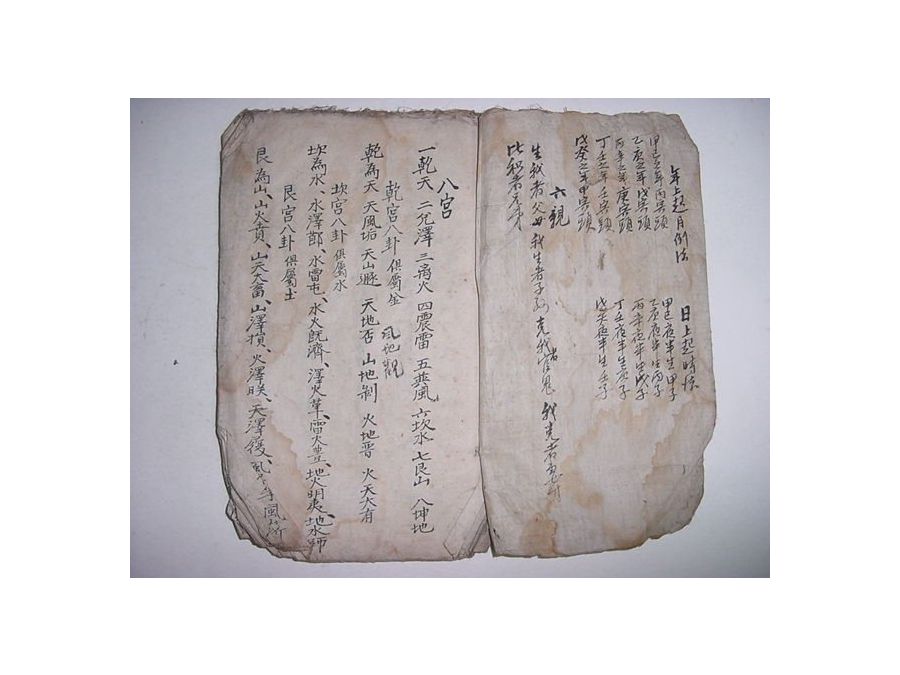 年上起月例法
甲己之年丙寅頭
乙庚之年戊寅頭
丙辛之年庚寅頭
丁壬之年壬寅頭
戊癸之年甲寅頭
日上起時法
甲己夜半生甲子
乙庚夜半生丙子
丙辛夜半生戊子
丁壬夜半生庚子
戊癸夜半生壬子
六親
生我者父母 我生者子孫 克我者官鬼 我克者妻才
比和者兄弟
八宮
一乾天 二兌澤 三离火 四震雷 五巽風 六坎水 七艮山 八坤地
乾宮八卦 俱屬金 風地觀
乾為天 天風垢 天山遯 天地否 山地剝 火地晉 火天大有
坎宮八卦 俱屬水
坎為水、水澤節、水雷屯、水火既濟、澤火革、雷火豊、地火明夷、地水師
艮宮八卦 俱屬土
艮為山、山火賁、山天大畜、山澤損、火澤睽、天澤履、風澤中孚 風山漸